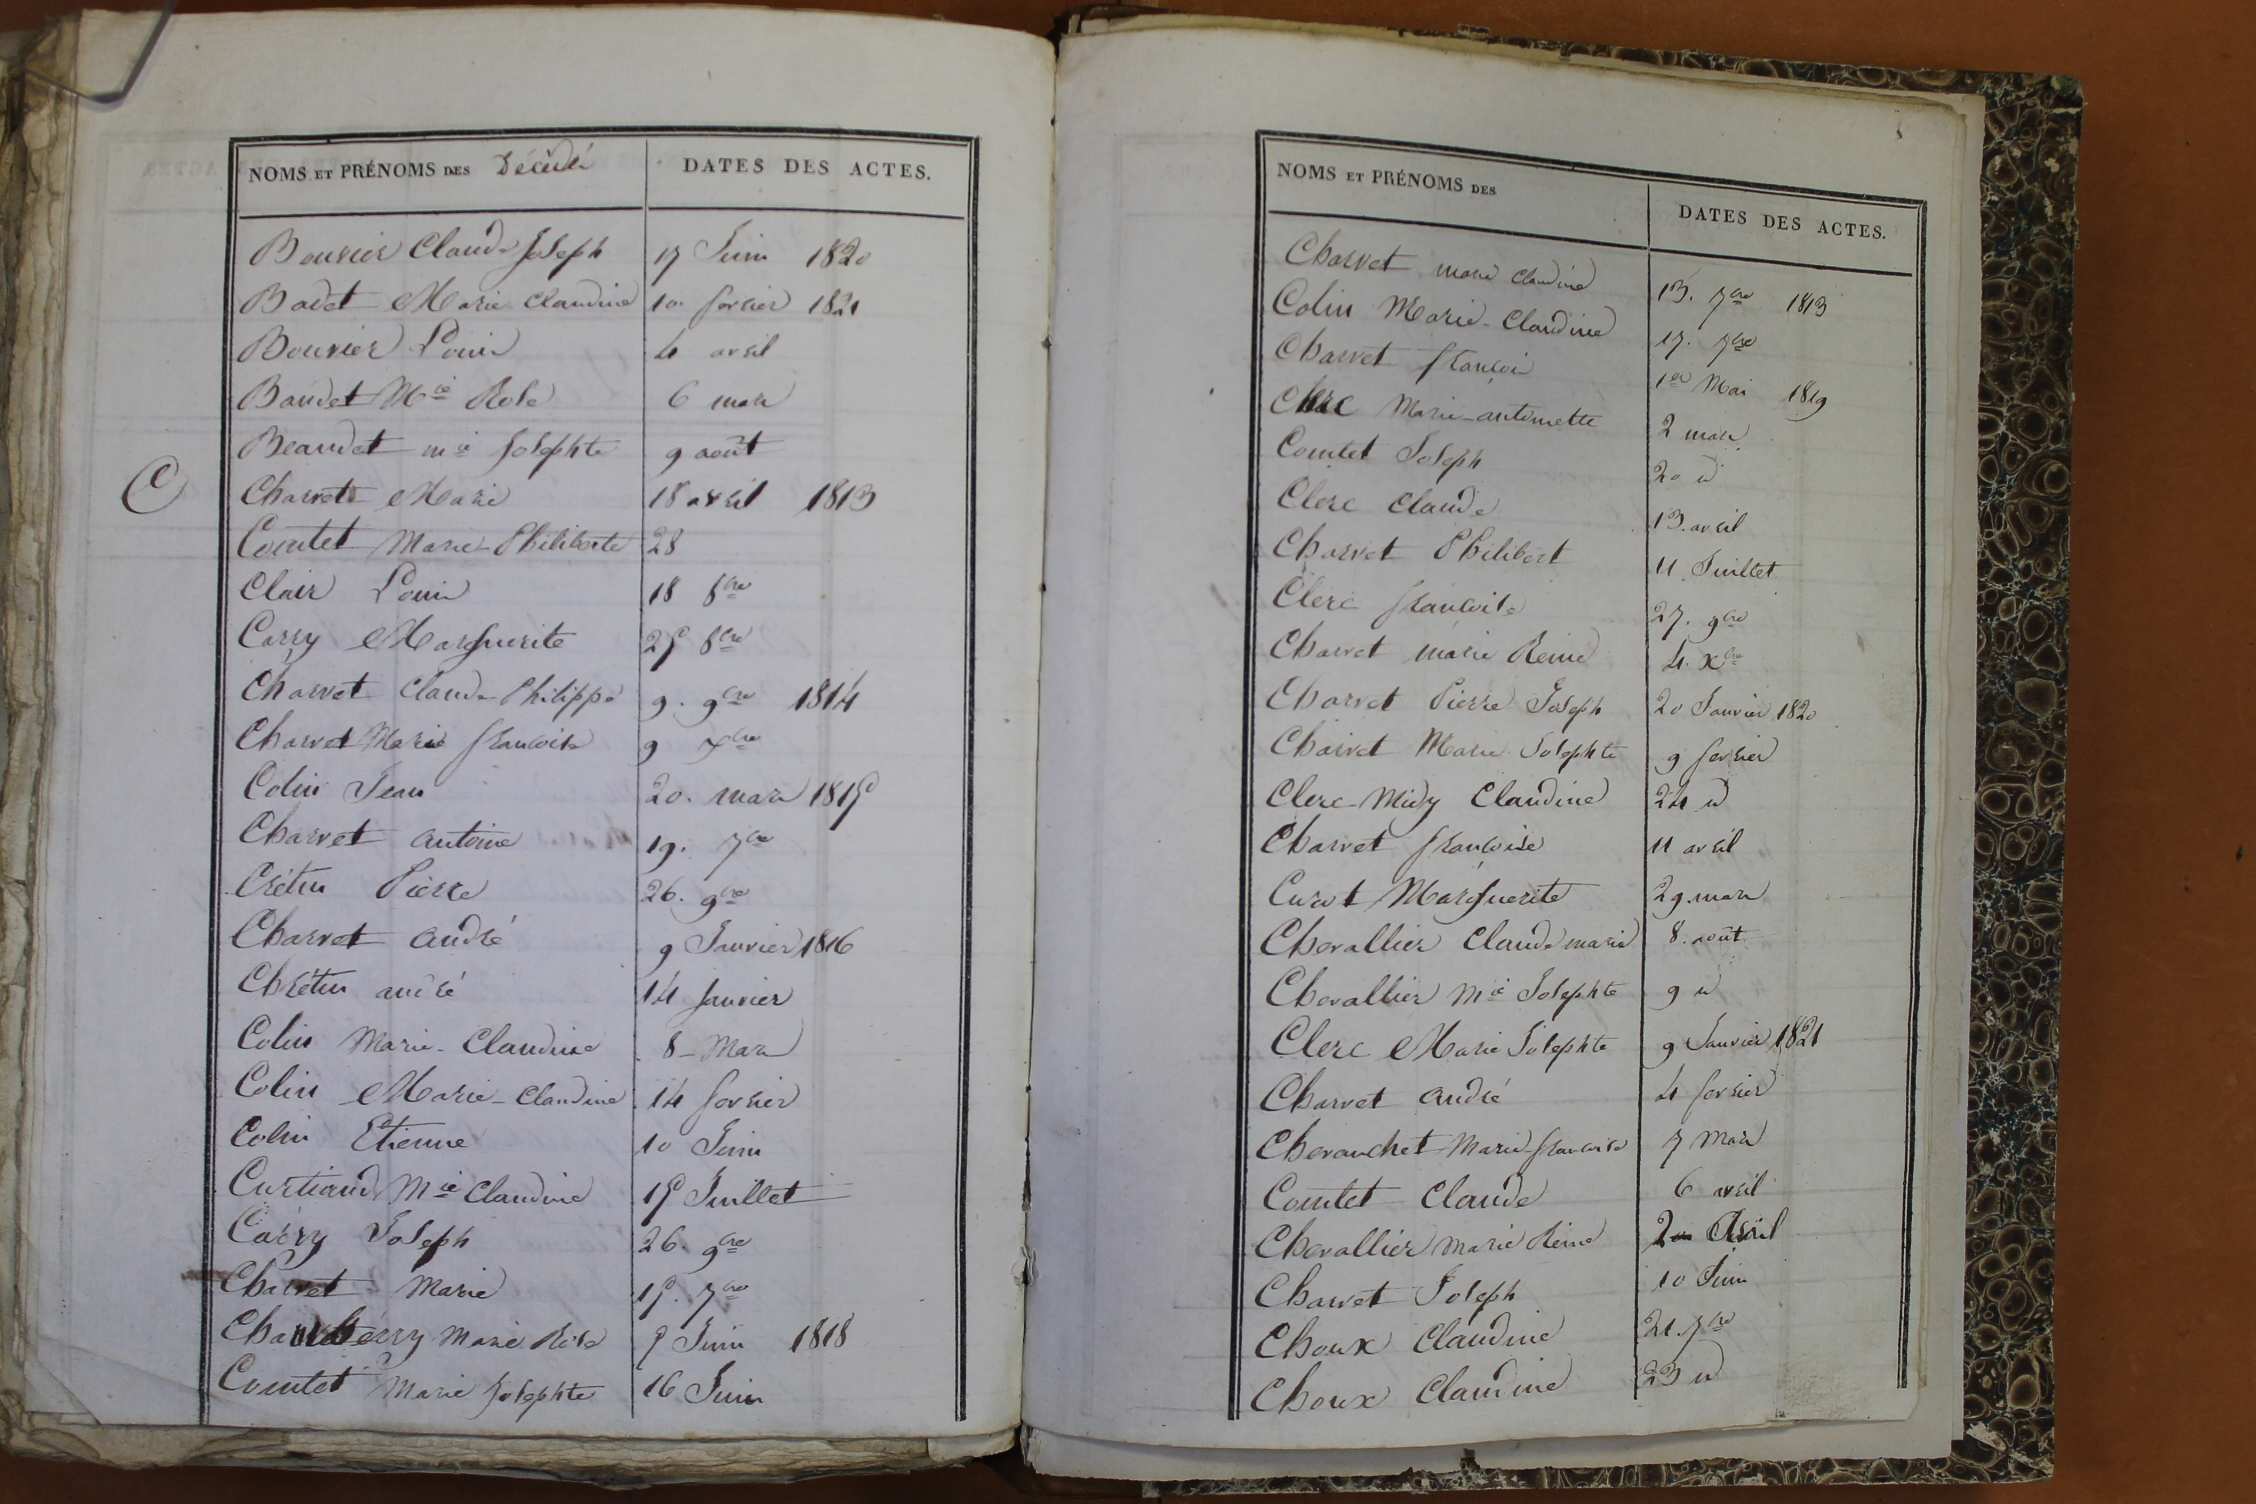 NOMS ET PRÉNOMS DES Décédé
DATES DES ACTES.
Bouvier Claude Joseph 17 Juin 1820
Badet Marie Claudine 10. fevrier 1821
Bouvier Louis 4 avril
Baudet Mie Rose 6 mars
Beaudet mie Josephte 9 août
C
Charvet Marie 18 avril 1813
Comtet Marie Philiberte 28
Clair Louis 18 8bre
Carry Marguerite 25 8bre
Charvet Claude Philippe 9. 9bre 1814
Charvet Marie francoise 9 xbre
Colin Jean 20. mars 1815
Charvet antoine 19. 7bre
Crétin Pierre 26. 9bre
Charvet andré 9 Janvier 1816
Chrétin andré 14 Janvier
Colin Marie-Claudine 8 - Mars
Colin Marie-Claudine 14 fevrier
Colin Etienne 10 Juin
Curtiaud Mie Claudine 15 Juillet
Carry Joseph 26. 9bre
Charvet Marie 15. 7bre
Chamberry Marie Rose 5 Juin 1818
Comtet Marie Josephte 16 Juin
NOMS ET PRÉNOMS DES
DATES DES ACTES.
Charvet marie claudine 13. 7bre 1813
Colin Marie-Claudine 17. 7bre
Charvet françois 1er Mai 1819
Clerc Marie-antoinette 2 mars
Comtet Joseph 20 id
Clerc Claude 13. avril
Charvet Philibert 11 Juillet
Clerc françoise 27. 9bre
Charvet marie Reine 4. xbre
Charvet Pierre Joseph 20 Janvier 1820
Charvet Marie Josephte 9 fevrier
Clerc-Midy Claudine 24 id
Charvet françoise 11 avril
Curot Marguerite 29. mars
Chevallier Claude marie 8. août
Chevallier Mie Josephte 9 id
Clerc Marie Josephte 9 Janvier 1821
Charvet andré 4 fevrier
Chevauchet Marie francoise 7 Mars
Comtet Claude 6 avril
Chevallier Marie Reine 2 Avril
Charvet Joseph 10 Juin
Choux Claudine 21. 7bre
Choux Claudine 23 id